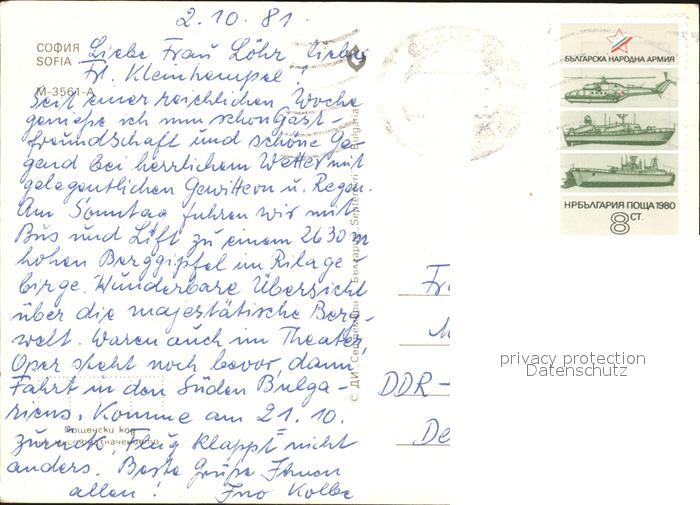 2.10.81
СОФИЯ
SOFIA
М-3561-А
Liebe Frau Löhr, liebes
Frl. Kleinhempel!
Seit einer reichlichen Woche
genieße ich nun schon Gast-
freundschaft und schöne Ge-
gend bei herrlichem Wetter mit
gelegentlichen Gewittern u. Regen.
Am Sonntag fuhren wir mit
Bus und Lift zu einem 2630 m
hohen Berggipfel im Rilage-
birge. Wunderbare Übersicht
über die majestätische Berg-
welt. Waren auch im Theater,
Oper steht noch bevor, dann
Fahrt in den Süden Bulga-
riens. Komme am 21.10.
zurück, Flug klappt nicht
anders. Beste Grüße Ihnen
allen! Ino Kolbe
Пощенски код
на местоназначението
© ДИ „Септември" България Septemvri Bulgaria
БЪЛГАРСКА НАРОДНА АРМИЯ
НРБЪЛГАРИЯ ПОЩА 1980
8 СТ.
Fr
DDR-
De
privacy protection
Datenschutz